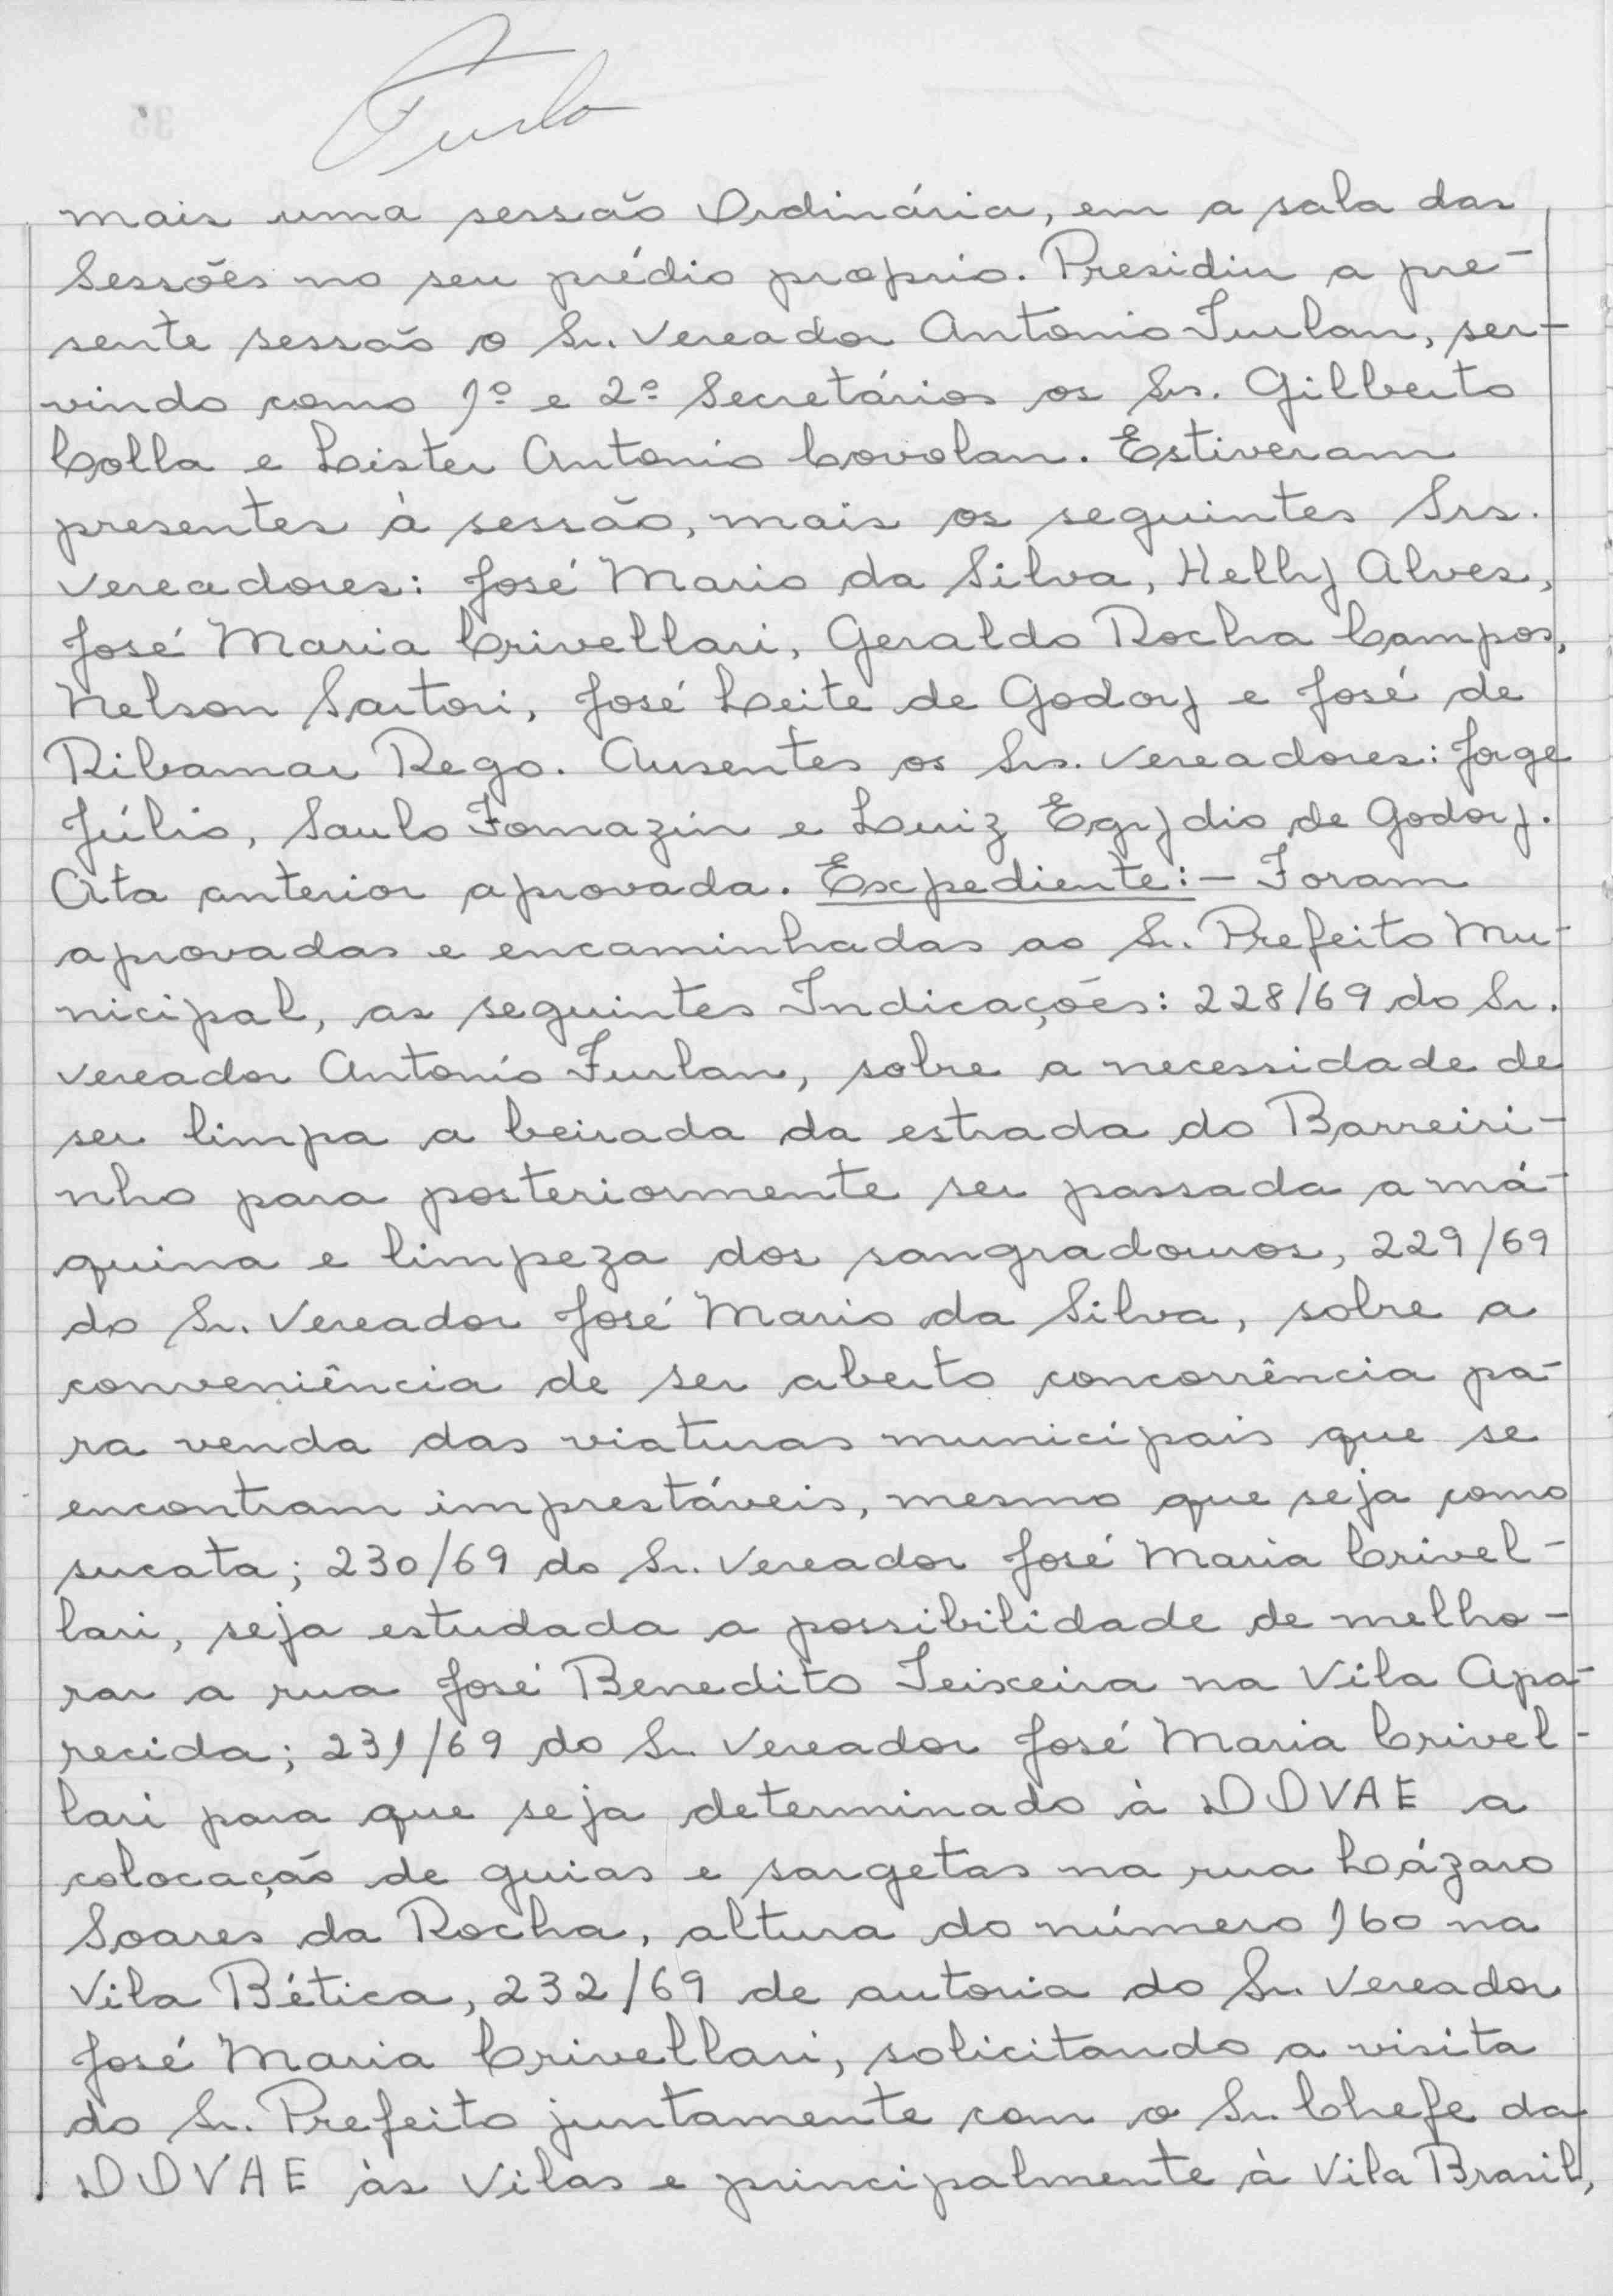 mais uma sessão Ordinária, em a sala das
Sessões no seu prédio proprio. Presidiu a pre-
sente sessão o Sr. Vereador Antonio Furlan, ser-
vindo como 1º e 2º Secretários os Srs. Gilberto
Colla e Lister Antonio Covolan. Estiveram
presentes à sessão, mais os seguintes Srs.
Vereadores: José Mario da Silva, Helly Alves,
José Maria Crivellari, Geraldo Rocha Campos,
Nelson Sartori, José Leite de Godoy e José de
Ribamar Rego. Ausentes os Srs. Vereadores: Jorge
Júlio, Saulo Fornazin e Luiz Egydio de Godoy.
Ata anterior aprovada. Expediente:- Foram
aprovadas e encaminhadas ao Sr. Prefeito Mu-
nicipal, as seguintes Indicações: 228/69 do Sr.
Vereador Antonio Furlan, sobre a necessidade de
ser limpa a beirada da estrada do Barreiri-
nho para posteriormente ser passada a má-
quina e limpeza dos sangradouros, 229/69
do Sr. Vereador José Mario da Silva, sobre a
conveniência de ser aberto concorrência pa-
ra venda das viaturas municipais que se
encontram imprestáveis, mesmo que seja como
sucata; 230/69 do Sr. Vereador José Maria Crivel-
lari, seja estudada a possibilidade de melho-
rar a rua José Benedito Teixeira na Vila Apa-
recida; 231/69 do Sr. Vereador José Maria Crivel-
lari para que seja determinado à DDVAE a
colocação de guias e sargetas na rua Lázaro
Soares da Rocha, altura do número 160 na
Vila Bética, 232/69 de autoria do Sr. Vereador
José Maria Crivellari, solicitando a visita
do Sr. Prefeito juntamente com o Sr. Chefe da
DDVAE às Vilas e principalmente à Vila Brasil,